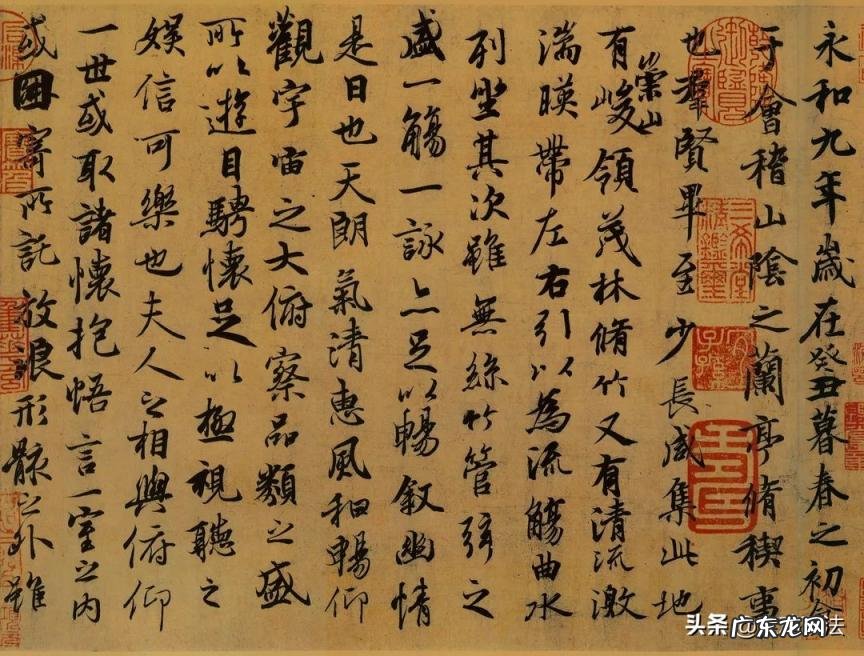 永和九年歲在癸丑暮春之初會
于會稽山陰之蘭亭脩稧事
也羣賢畢至少長咸集此地
有崇山峻領茂林脩竹又有清流激
湍暎帶左右引以為流觴曲水
列坐其次雖無絲竹管弦之
盛一觴一詠亦足以暢敘幽情
是日也天朗氣清惠風和暢仰
觀宇宙之大俯察品類之盛
所以遊目騁懷足以極視聽之
娛信可樂也夫人之相與俯仰
一世或取諸懷抱悟言一室之內
或因寄所託放浪形骸之外雖
三希堂
頭条 @广东龙网法